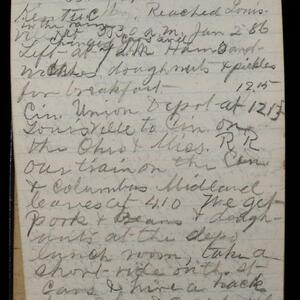 Ken Tuc Ky. Reached Louis-
ville at 3.30 a.m. Jan 2 86
changed cars and
Left at 7 A.M. Ham Sand-
wiches doughnuts & pickles
for breakfast- 12.15
Cin. Union Depot at 12 15
Louisville to Cin. on
the Ohio & Miss. R R
our train on the Cin
& Columbus Midland
leaves at 4.10 We get
pork & beans & dough-
nuts at the depot
lunch room, take a
short ride on the st.
cars & hire a hack